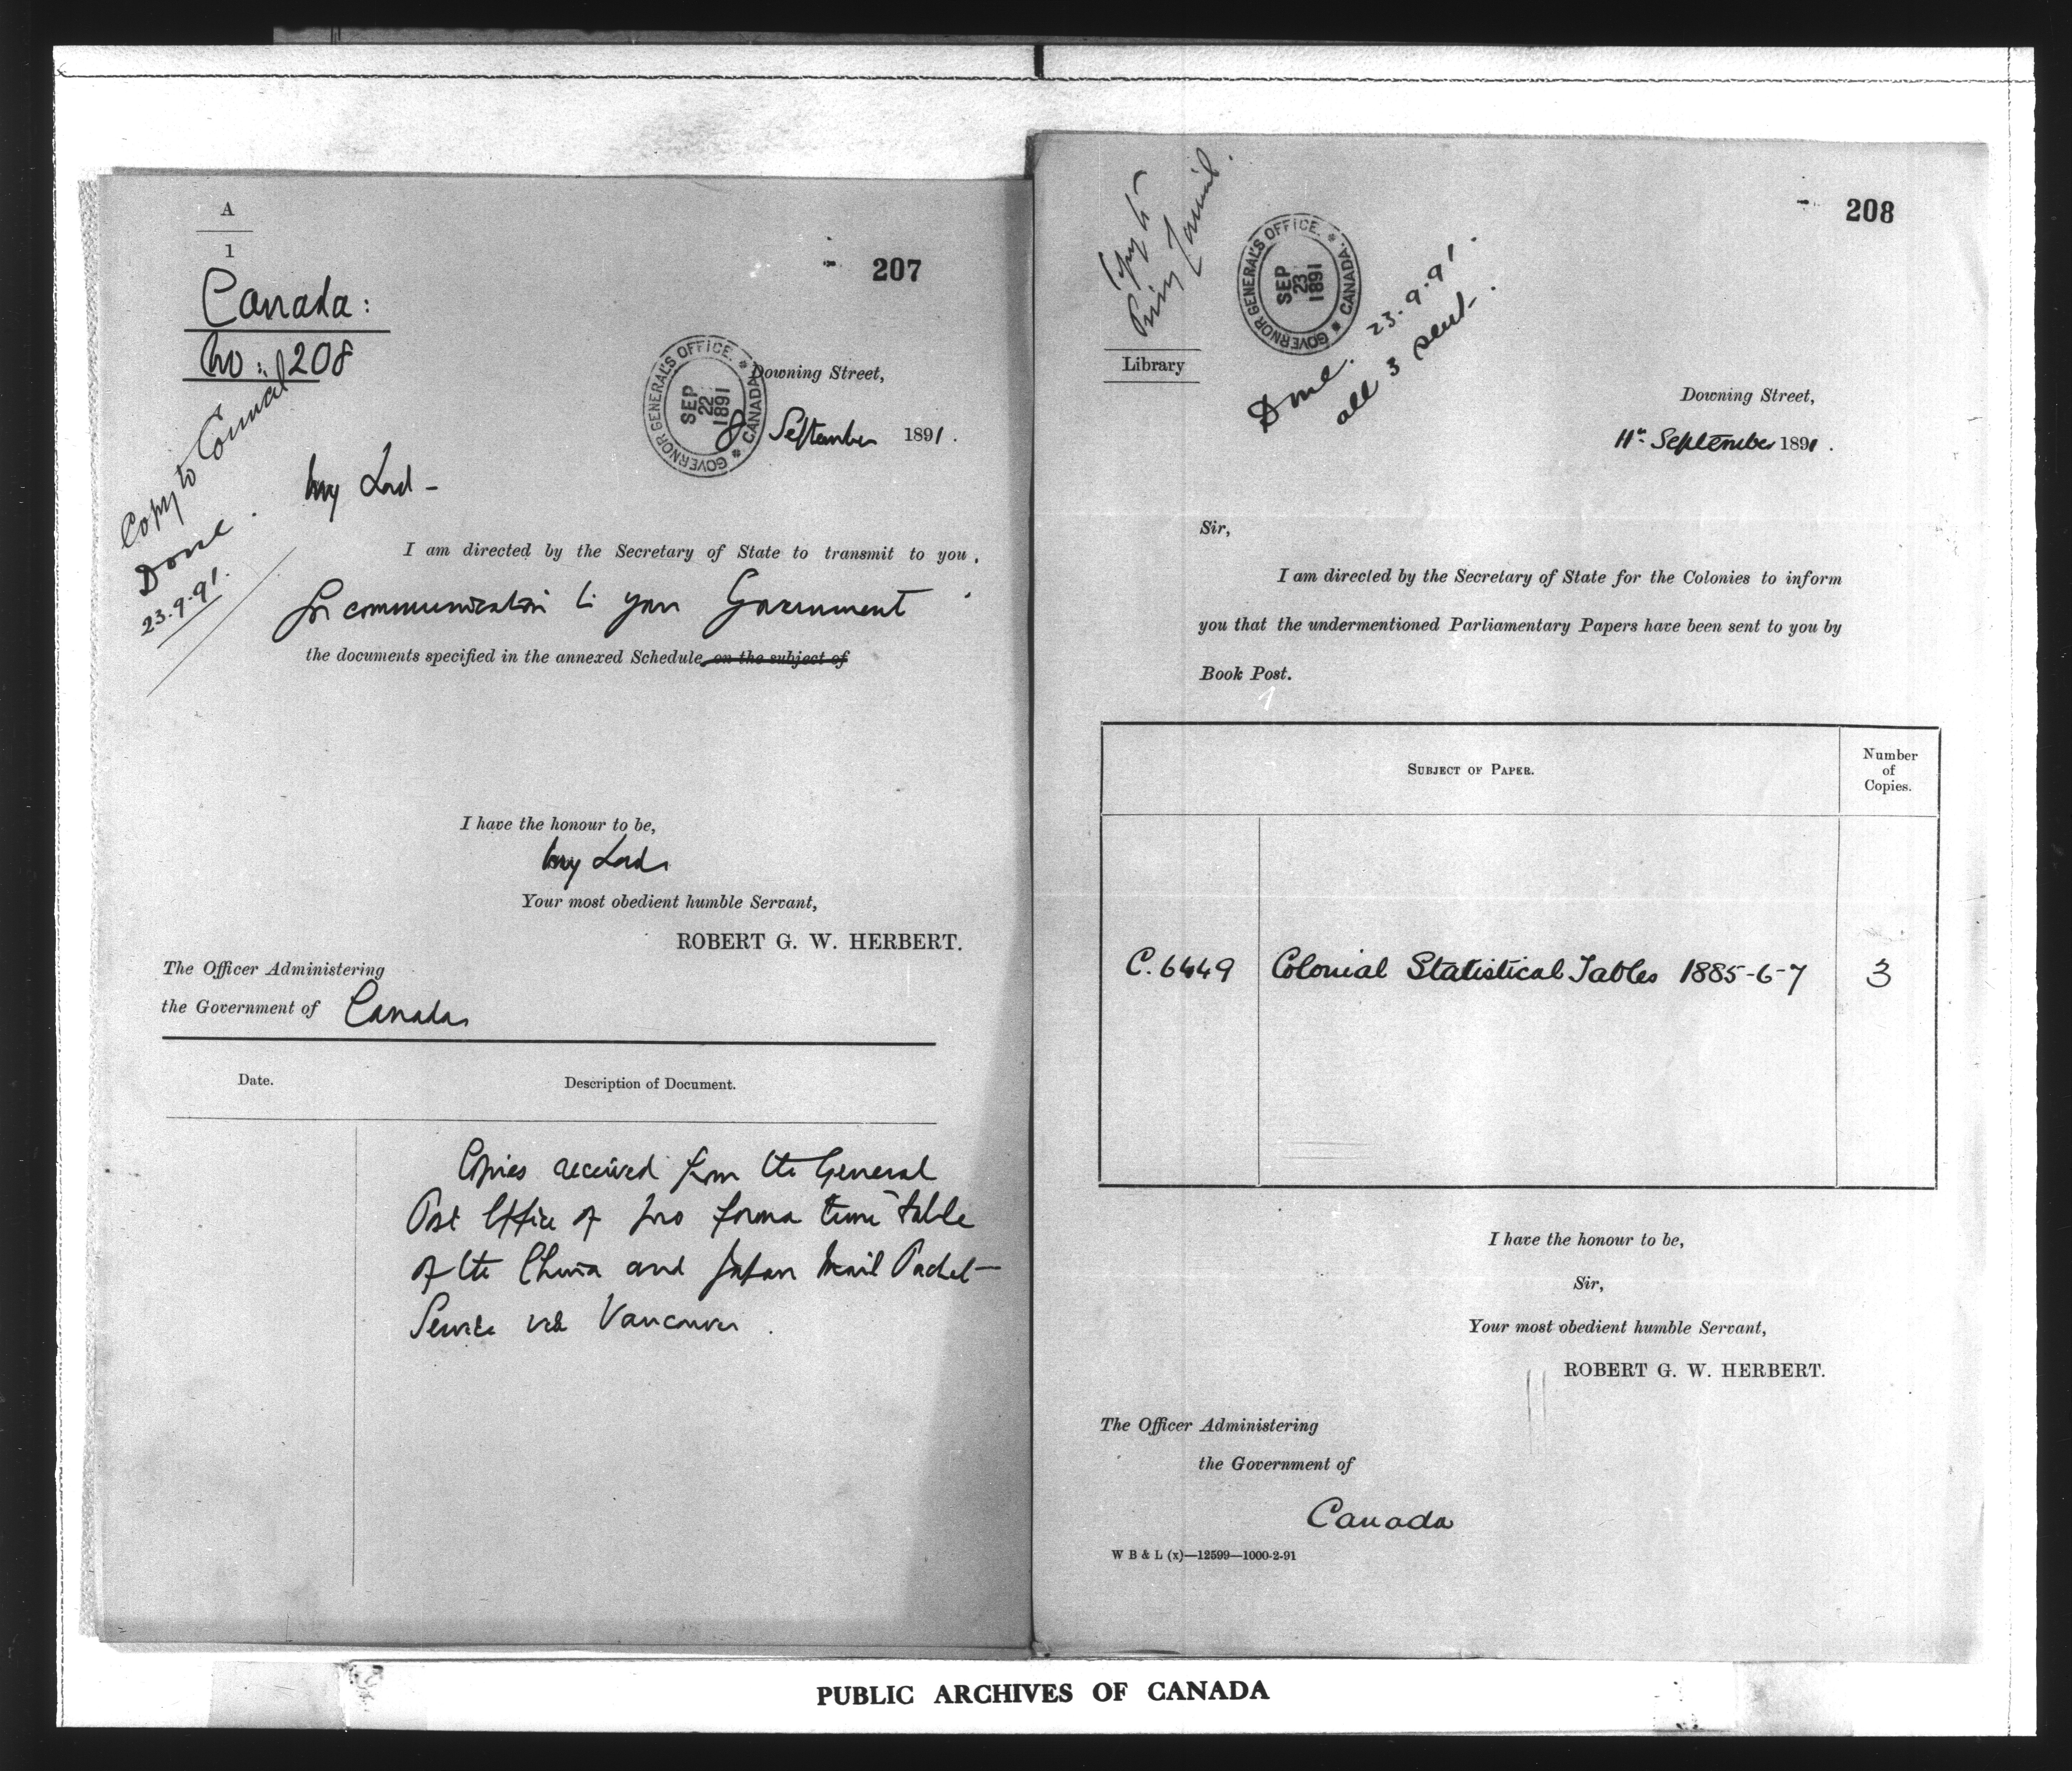 A
1
207
Canada:
No: 208
GOVERNOR GENERAL'S OFFICE. * CANADA *
SEP
22
1891
Downing Street,
8 September 1891.
Copy to Council
Done.
23.9.91.
My Lord -
I am directed by the Secretary of State to transmit to you,
for communication to your Government
the documents specified in the annexed Schedule, on the subject of
I have the honour to be,
My Lord,
Your most obedient humble Servant,
ROBERT G. W. HERBERT.
The Officer Administering
the Government of Canada
Date.
Description of Document.
Copies received from the General
Post Office of pro forma time table
of the China and Japan Mail Packet
Service via Vancouver.
208
Copy to
Privy Council.
GOVERNOR GENERAL'S OFFICE. * CANADA. *
SEP
23
1891
Done. 23.9.91.
all 3 sent.
Library
Downing Street,
11th September 1891.
Sir,
I am directed by the Secretary of State for the Colonies to inform
you that the undermentioned Parliamentary Papers have been sent to you by
Book Post.
SUBJECT OF PAPER.
Number
of
Copies.
C. 6449 Colonial Statistical Tables 1885-6-7 3
I have the honour to be,
Sir,
Your most obedient humble Servant,
ROBERT G. W. HERBERT.
The Officer Administering
the Government of
Canada
W B & L (x)—12599—1000-2-91
PUBLIC ARCHIVES OF CANADA